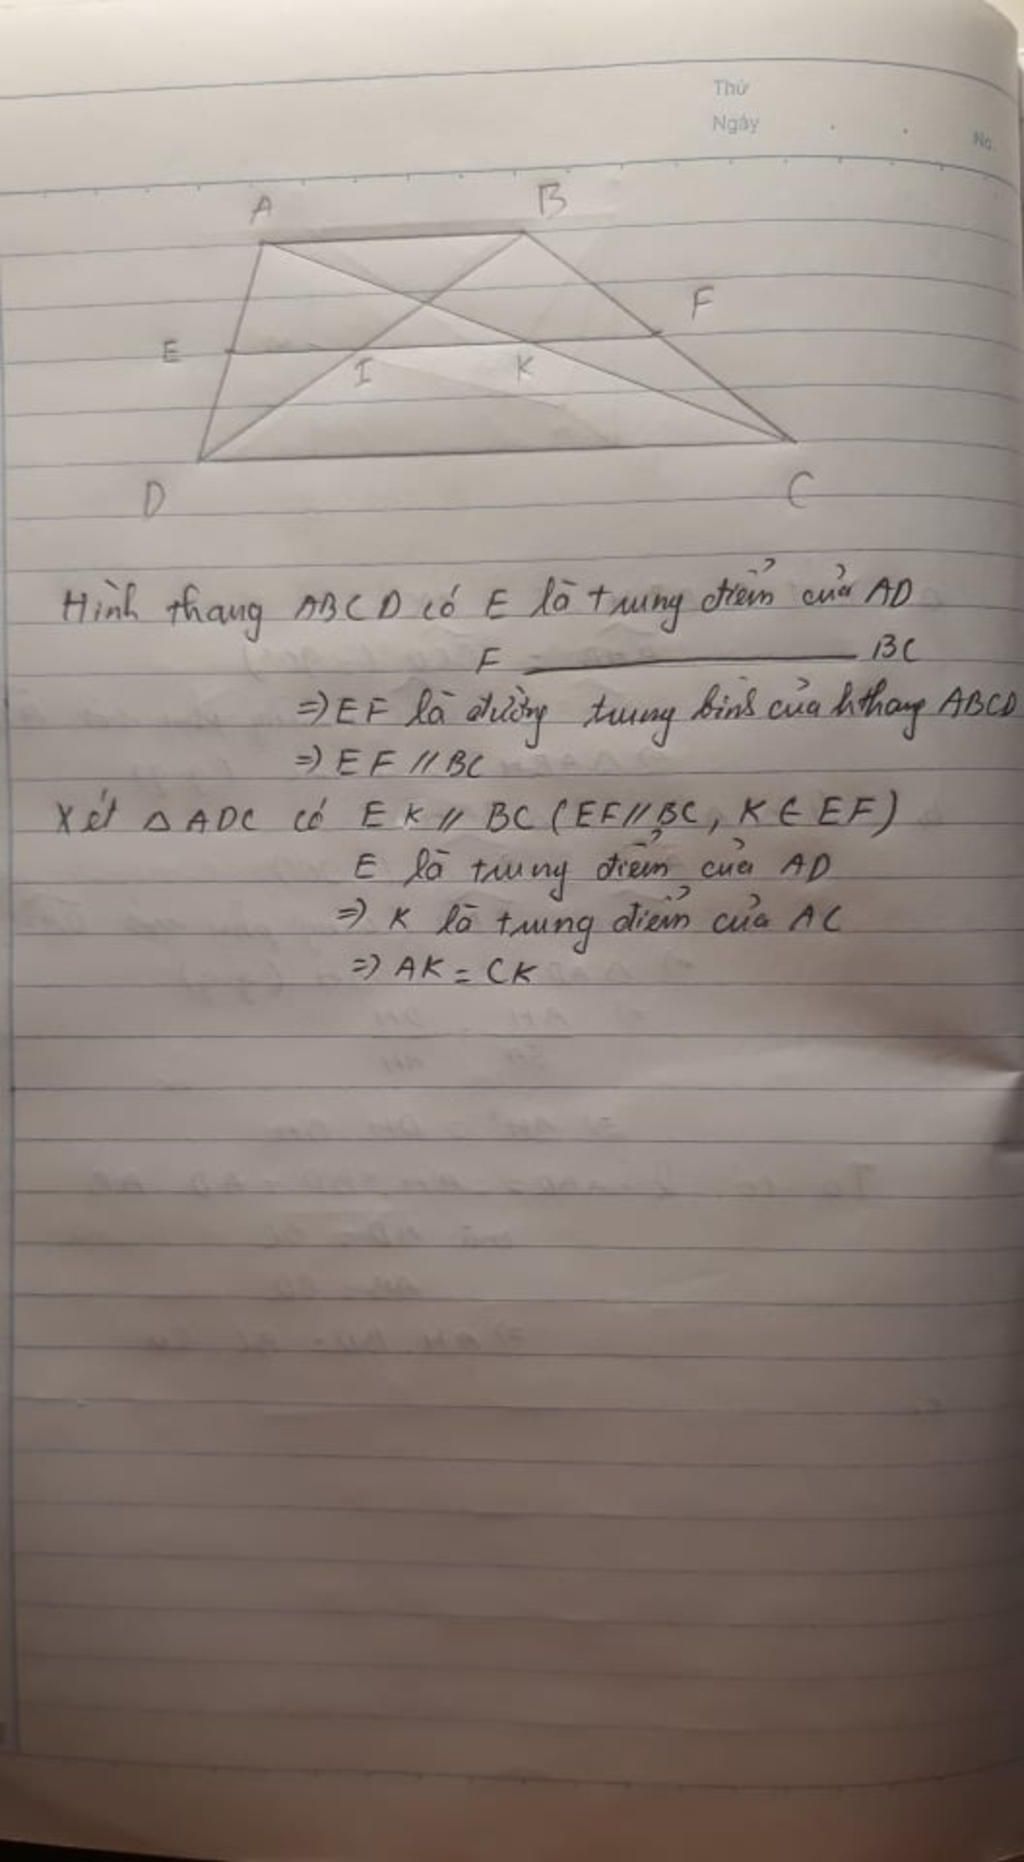 Thứ
Ngày
No.
A
B
E
I
K
F
D
C
Hình thang ABCD có E là trung điểm của AD
F ———— BC
=> EF là đường trung bình của hthang ABCD
=> EF // BC
Xét △ ADC có EK // BC (EF // BC, K ∈ EF)
E là trung điểm của AD
=> K là trung điểm của AC
=> AK = CK